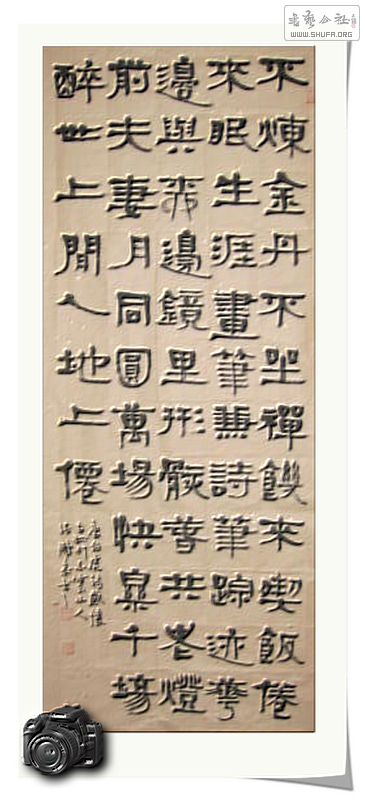 不煉金丹不坐禪饑來喫飯倦
來眠生涯畫筆兼詩筆踪迹華
邊與柳邊鏡里形骸春共老燈
前夫妻月同圓萬場快樂千場
醉世上閒人地上僊
唐伯虎詩感懷
書藝公社
WWW.SHUFA.ORG